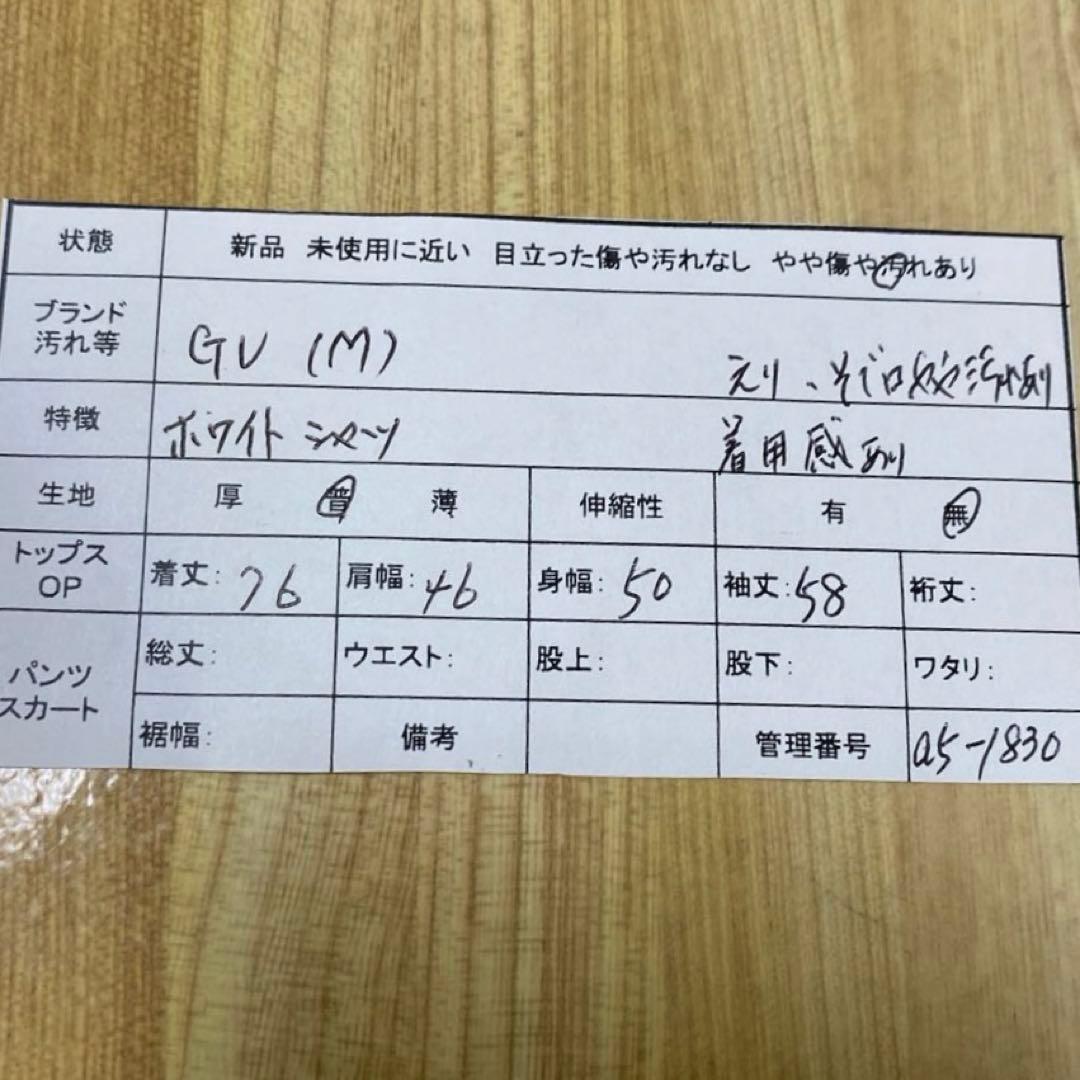 状態 新品 未使用に近い 目立った傷や汚れなし やや傷や汚れあり
ブランド
汚れ等 GU (M) えり、そで口やや汚れあり
特徴 ホワイトシャツ 着用感あり
生地 厚 普 薄 伸縮性 有 無
トップス
OP 着丈: 76 肩幅: 46 身幅: 50 袖丈: 58 裄丈:
パンツ
スカート 総丈: ウエスト: 股上: 股下: ワタリ:
裾幅: 備考 管理番号 a5-1830